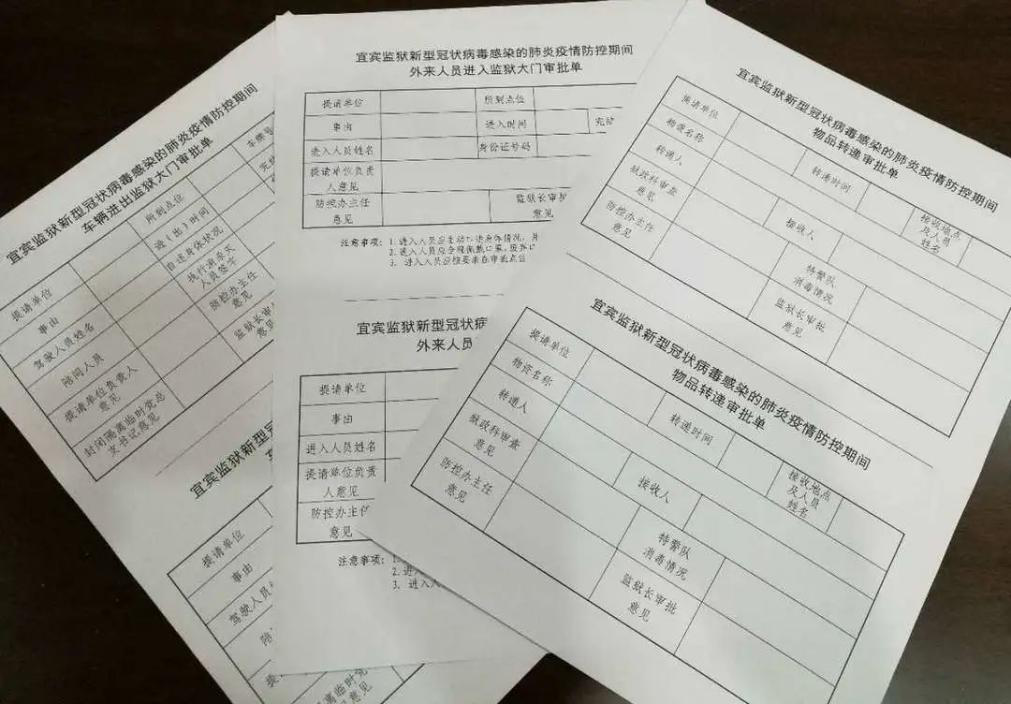 宜宾监狱新型冠状病毒感染的肺炎疫情防控期间
车辆进出监狱大门审批单
提请单位
所到点位
车牌号
事由
进（出）时间
驾驶人员姓名
自述身体状况
陪同人员
人员签字
提请单位负责人
意见
防控办主任
意见
封闭隔离临时党总
支书记意见
监狱长审
意见
宜宾监狱新型
提请单位
事由
驾驶人员
陪
提
离临时党
意见
宜宾监狱新型冠状病毒感染的肺炎疫情防控期间
外来人员进入监狱大门审批单
提请单位
所到点位
事由
进入时间
进入人员姓名
身份证号码
提请单位负责
人意见
防控办主任
意见
监狱长审
意见
注意事项：1. 进入人员应主动
2. 进入人员应全程佩戴口罩、
3. 进入人员应按要求在审批点位
宜宾监狱新型冠状病
外来人员
提请单位
事由
进入人员姓名
提请单位负责
人意见
防控办主任
意见
注意事项：1.
2. 进
3. 进入人
宜宾监狱新型冠状病毒感染的肺炎疫情防控期间
物品转递审批单
提请单位
物资名称
转递人
转递时间
狱政科审查
意见
接收人
接收地点
及人员
姓名
防控办主任
意见
特警队
消毒情况
监狱长审批
意见
宜宾监狱新型冠状病毒感染的肺炎疫情防控期间
物品转递审批单
提请单位
物资名称
转递人
转递时间
狱政科审查
意见
接收人
接收地点
及人员
姓名
防控办主任
意见
特警队
消毒情况
监狱长审批
意见